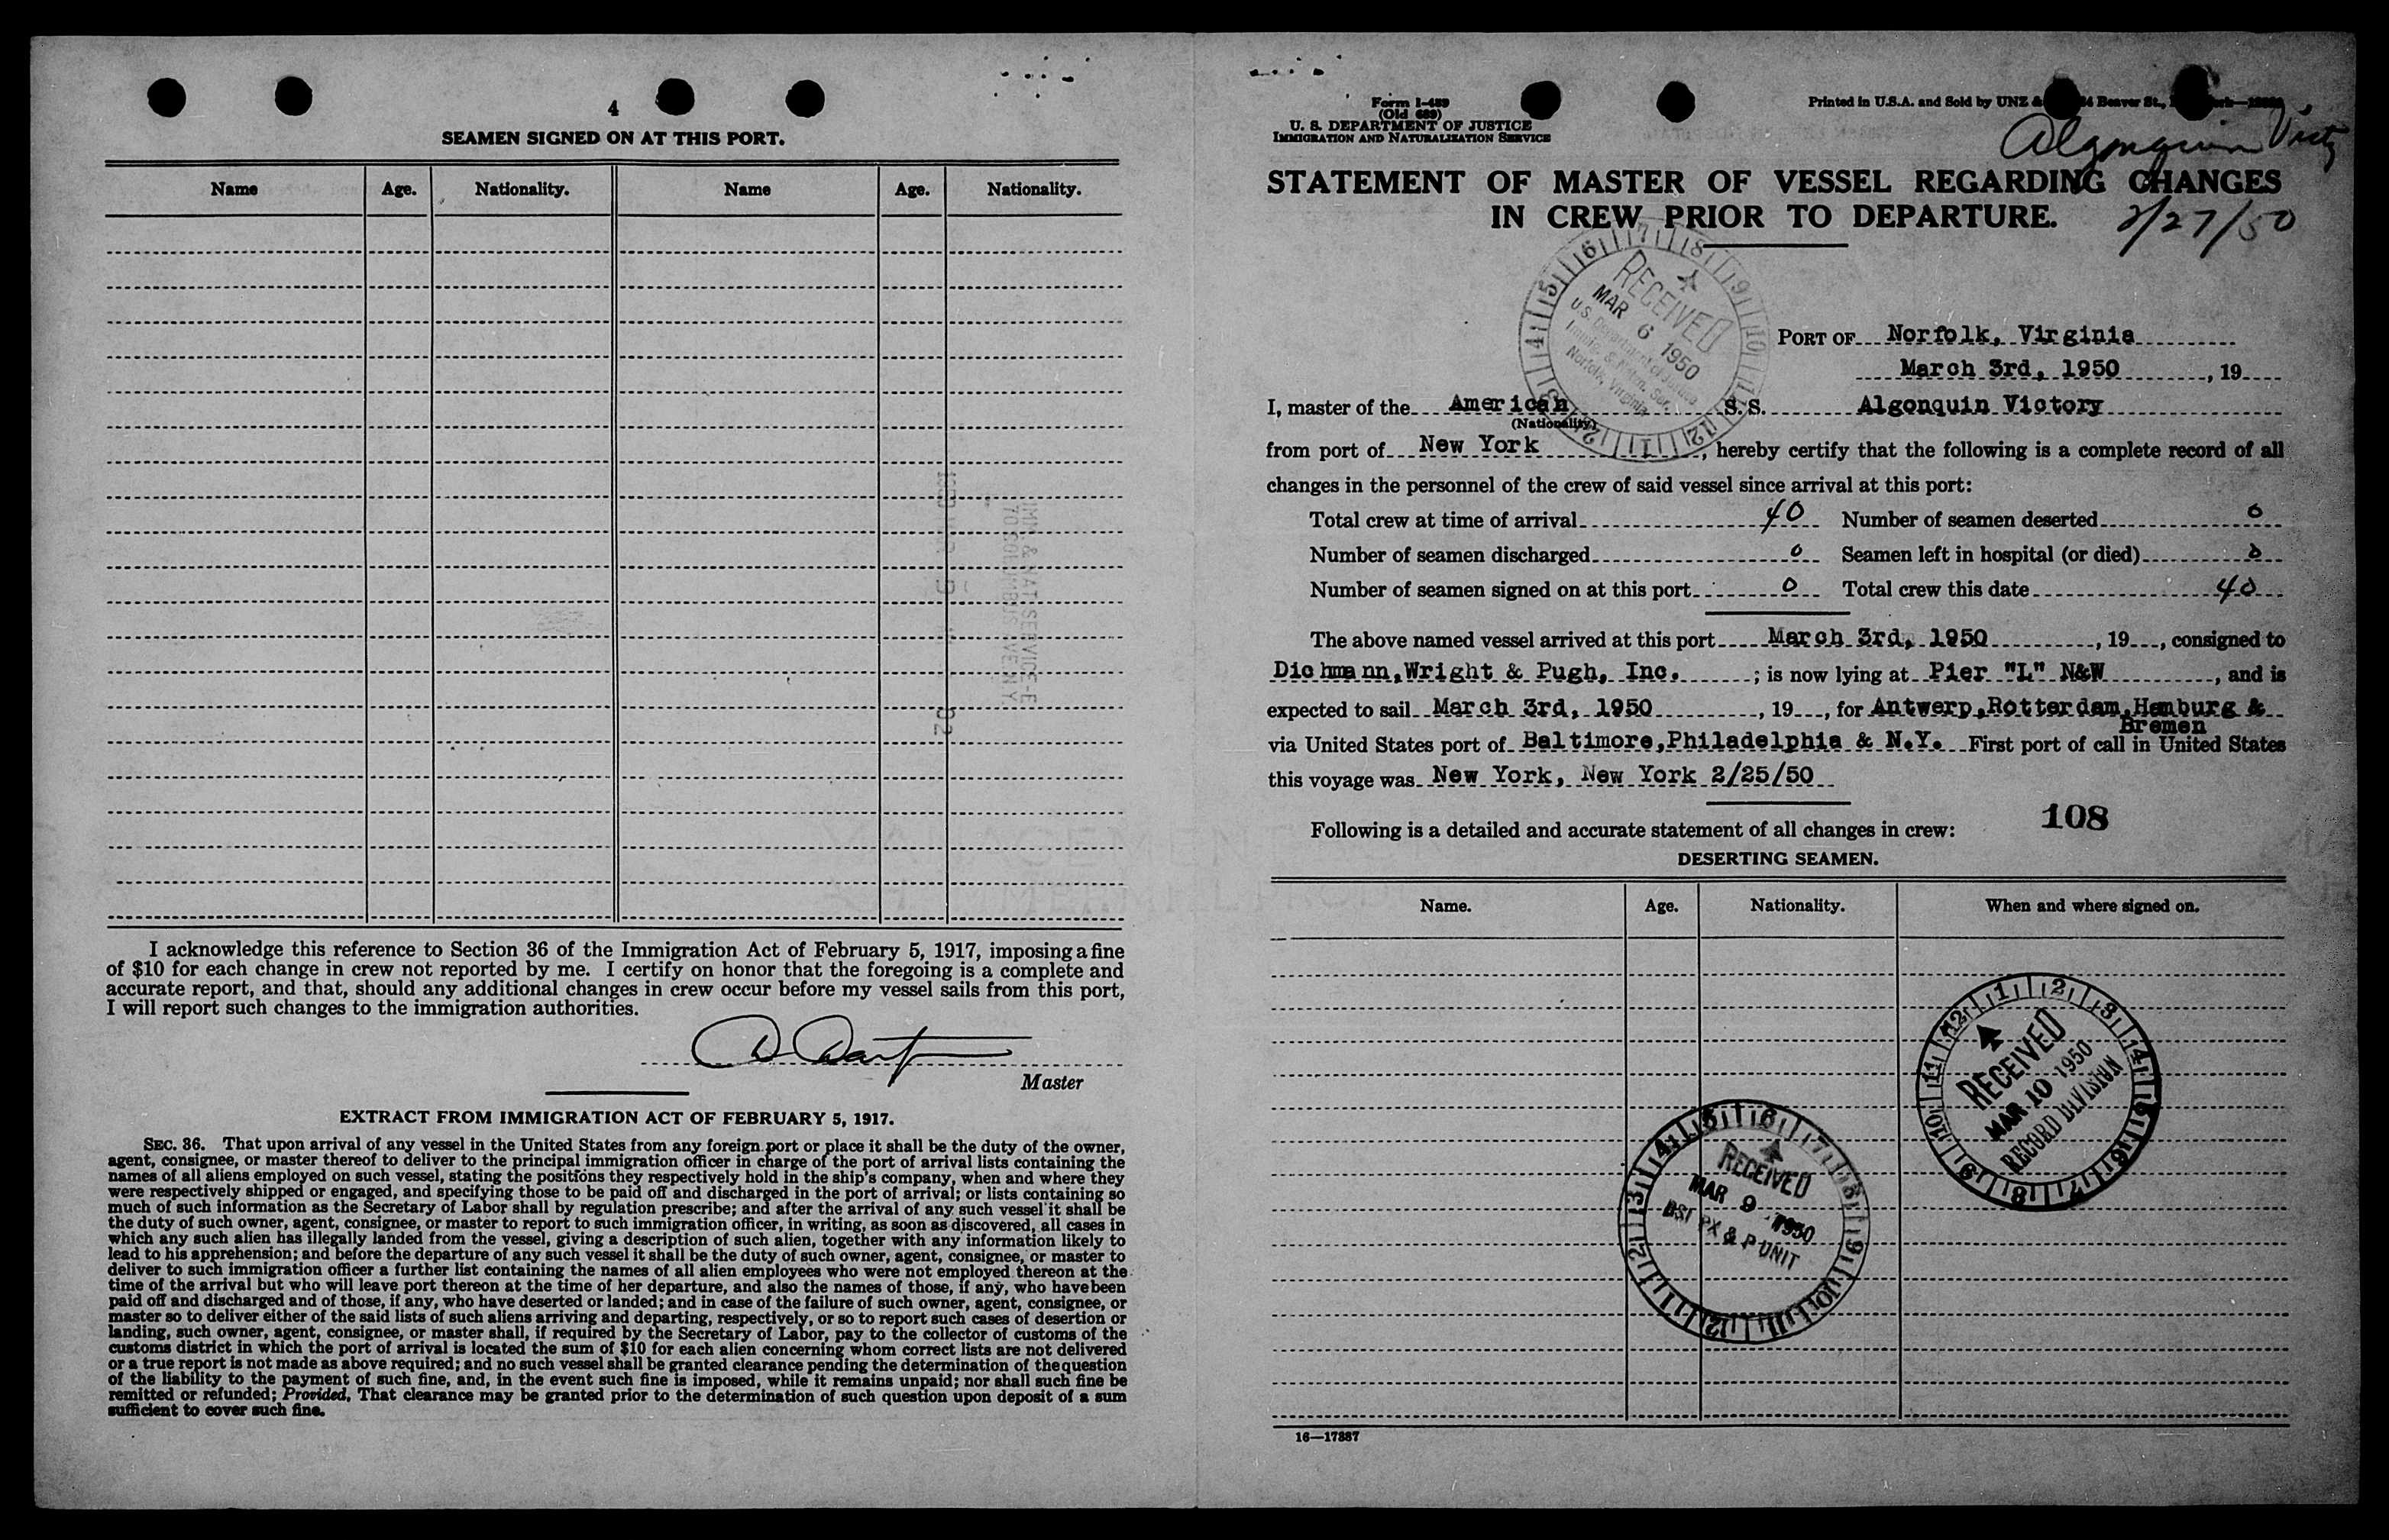 4
SEAMEN SIGNED ON AT THIS PORT.
Name Age. Nationality. Name Age. Nationality.
I acknowledge this reference to Section 36 of the Immigration Act of February 5, 1917, imposing a fine
of $10 for each change in crew not reported by me. I certify on honor that the foregoing is a complete and
accurate report, and that, should any additional changes in crew occur before my vessel sails from this port,
I will report such changes to the immigration authorities.
Master
EXTRACT FROM IMMIGRATION ACT OF FEBRUARY 5, 1917.
SEC. 36. That upon arrival of any vessel in the United States from any foreign port or place it shall be the duty of the owner,
agent, consignee, or master thereof to deliver to the principal immigration officer in charge of the port of arrival lists containing the
names of all aliens employed on such vessel, stating the positions they respectively hold in the ship's company, when and where they
were respectively shipped or engaged, and specifying those to be paid off and discharged in the port of arrival; or lists containing so
much of such information as the Secretary of Labor shall by regulation prescribe; and after the arrival of any such vessel it shall be
the duty of such owner, agent, consignee, or master to report to such immigration officer, in writing, as soon as discovered, all cases in
which any such alien has illegally landed from the vessel, giving a description of such alien, together with any information likely to
lead to his apprehension; and before the departure of any such vessel it shall be the duty of such owner, agent, consignee, or master to
deliver to such immigration officer a further list containing the names of all alien employees who were not employed thereon at the
time of the arrival but who will leave port thereon at the time of her departure, and also the names of those, if any, who have been
paid off and discharged and of those, if any, who have deserted or landed; and in case of the failure of such owner, agent, consignee, or
master so to deliver either of the said lists of such aliens arriving and departing, respectively, or so to report such cases of desertion or
landing, such owner, agent, consignee, or master shall, if required by the Secretary of Labor, pay to the collector of customs of the
customs district in which the port of arrival is located the sum of $10 for each alien concerning whom correct lists are not delivered
or a true report is not made as above required; and no such vessel shall be granted clearance pending the determination of the question
of the liability to the payment of such fine, and, in the event such fine is imposed, while it remains unpaid; nor shall such fine be
remitted or refunded; Provided, That clearance may be granted prior to the determination of such question upon deposit of a sum
sufficient to cover such fine.
Form I-489
(Old 689)
U. S. DEPARTMENT OF JUSTICE
IMMIGRATION AND NATURALIZATION SERVICE
Printed in U.S.A. and Sold by UNZ & Beaver St.,
Algonquin Victy
STATEMENT OF MASTER OF VESSEL REGARDING CHANGES
IN CREW PRIOR TO DEPARTURE.
2/27/50
RECEIVED
MAR 6 1950
U.S. Department of Justice
Immig. & Natzn. Ser.
Norfolk, Virginia
PORT OF Norfolk, Virginia
March 3rd, 1950, 19
I, master of the American S. S. Algonquin Victory
(Nationality)
from port of New York, hereby certify that the following is a complete record of all
changes in the personnel of the crew of said vessel since arrival at this port:
Total crew at time of arrival 40 Number of seamen deserted 0
Number of seamen discharged 0 Seamen left in hospital (or died) 0
Number of seamen signed on at this port 0 Total crew this date 40
The above named vessel arrived at this port March 3rd, 1950, 19, consigned to
Dichmann, Wright & Pugh, Inc. ; is now lying at Pier "L" N&W, and is
expected to sail March 3rd, 1950, 19, for Antwerp, Rotterdam, Hamburg &
Bremen
via United States port of Baltimore, Philadelphia & N.Y. First port of call in United States
this voyage was New York, New York 2/25/50
108
Following is a detailed and accurate statement of all changes in crew:
DESERTING SEAMEN.
Name. Age. Nationality. When and where signed on.
RECEIVED
MAR 10 1950
RECORD DIVISION
RECEIVED
MAR 9 1950
BSI PX & P UNIT
16—17887